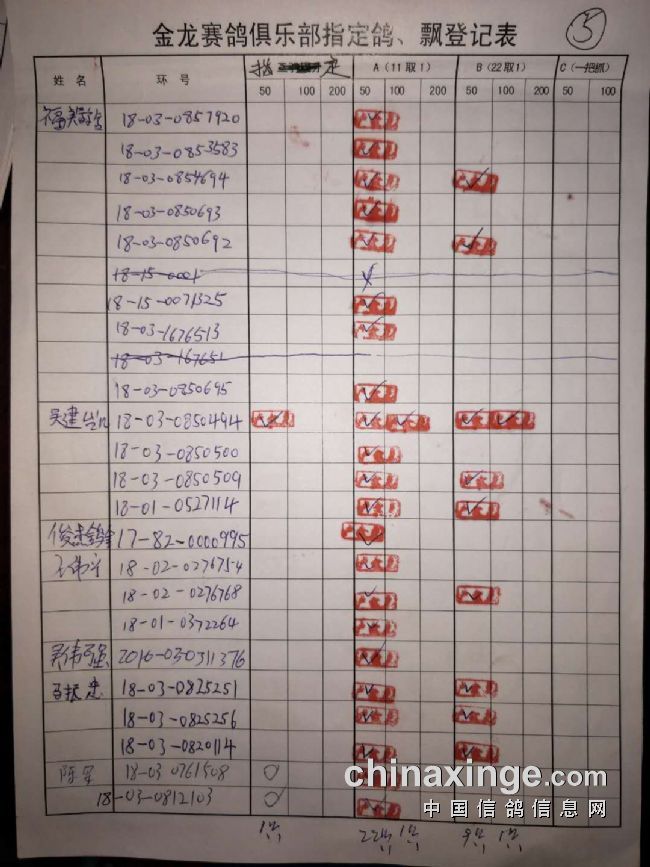 ⑤
金龙赛鸽俱乐部指定鸽、飘登记表
姓 名 环 号 指 定 A(11取1) B(22取1) C(一把抓)
50 100 200 50 100 200 50 100 200 50 100
18-03-0857920
18-03-0853583
18-03-0854694
18-03-0850693
18-03-0850692
18-15-0001
18-15-0071325
18-03-1676513
18-03-167651
18-03-0850695
吴建 18-03-0850494
18-03-0850500
18-03-0850509
18-01-0527114
俊杰鸽舍 17-82-0000995
18-02-0276754
18-02-0276768
18-01-0372264
伟强 2016-030311376
18-03-0825251
18-03-0825256
18-03-0820114
陈军 18-03 0761508
18-03-0812103
chinaxinge.com
中国信鸽信息网